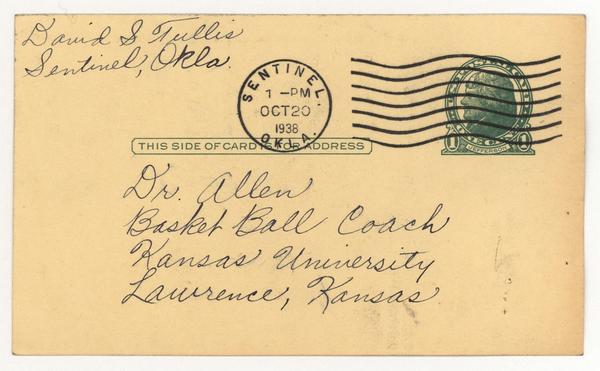 David S Tullis
Sentinel, Okla.
SENTINEL.
1 -PM
OCT 20
1938
OKLA.
THIS SIDE OF CARD IS FOR ADDRESS
1 JEFFERSON 1
Dr. Allen
Basket Ball Coach
Kansas University
Lawrence, Kansas.